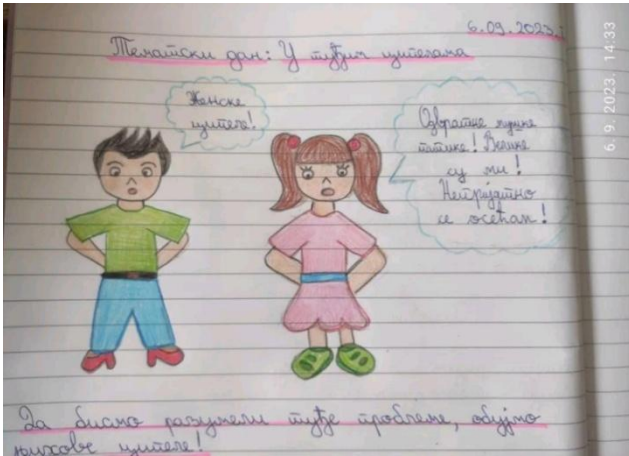 6.09.2023.
Тематски дан: У туђим ципелама
Женске
ципеле!
Одвратне мушке
патике! Велике
су ми!
Непријатно
се осећам!
За бисмо разумели туђе проблеме, обујмо
њихове ципеле!
6. 9. 2023. 14:33